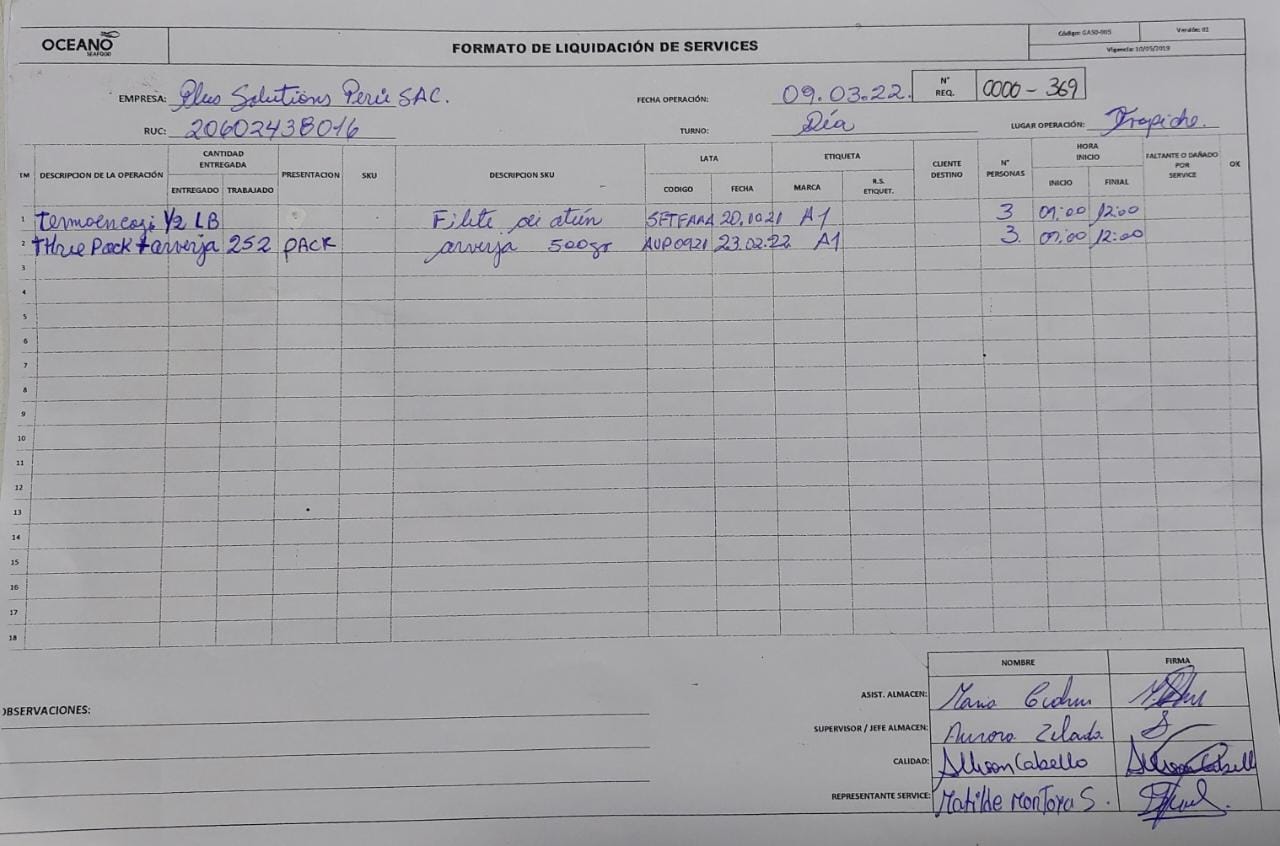 OCEANO
SEAFOOD
FORMATO DE LIQUIDACIÓN DE SERVICES
Código: GASO-005
Versión: 02
Vigencia: 10/05/2019
EMPRESA: Plus Solutions Perú SAC.
FECHA OPERACIÓN: 09.03.22.
N° REQ. 0000 - 369
RUC: 20602438016
TURNO: Día
LUGAR OPERACIÓN: Trapiche.
EM DESCRIPCION DE LA OPERACIÓN CANTIDAD ENTREGADA ENTREGADO TRABAJADO PRESENTACION SKU DESCRIPCION SKU LATA CODIGO FECHA ETIQUETA MARCA R.S. ETIQUET. CLIENTE DESTINO N° PERSONAS HORA INICIO INICIO FINIAL FALTANTE O DAÑADO POR SERVICE OK
1 Termoencogi 1/2 LB Filete de atún 20.10.21 A1 3 09:00 12:00
2 THree Pack + arverja 252 PACK arverja 500gr AUP0921 23.02.22 A1 3. 09:00 12:00
3
4
5
6
7
8
9
10
11
12
13
14
15
16
17
18
NOMBRE FIRMA
OBSERVACIONES:
ASIST. ALMACEN: Maria
SUPERVISOR / JEFE ALMACEN: Aurora Zelada
CALIDAD: Allison Cabello
REPRESENTANTE SERVICE: Matilde Montoya S.